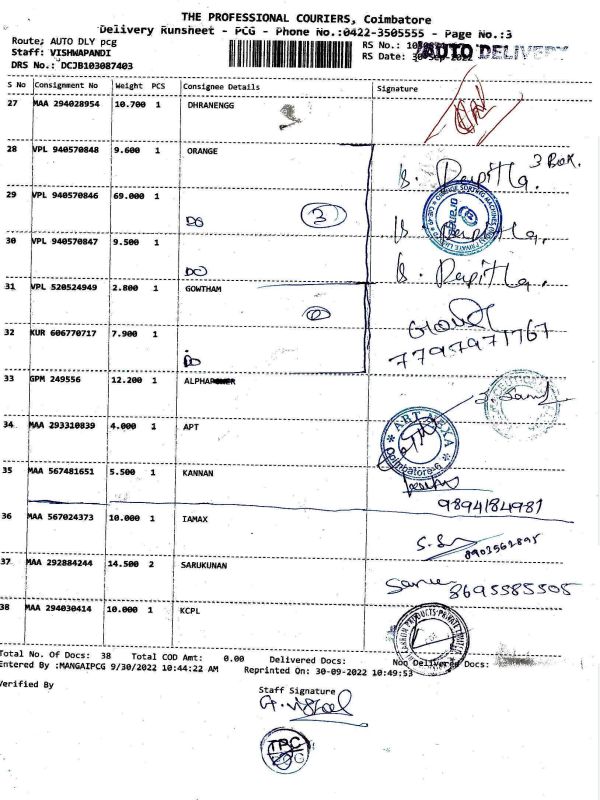 THE PROFESSIONAL COURIERS, Coimbatore
Delivery Runsheet - PCG - Phone No.:0422-3505555 - Page No.:3
Route; AUTO DLY pcg
RS No.:
AUTO DELIVERY
Staff: VISHWAPANDI
RS Date: 30-Sep-2022
DRS No.: DCJB103087403
S No Consignment No Weight PCS Consignee Details Signature
27 MAA 294028954 10.700 1 DHRANENGG
28 VPL 940570848 9.600 1 ORANGE
3 Box.
29 VPL 940570846 69.000 1
DO 3
30 VPL 940570847 9.500 1
DO
31 VPL 520524949 2.800 1 GOWTHAM
32 KUR 606770717 7.900 1
DO
7797971767
33 GPM 249556 12.200 1 ALPHAPOWER
34 MAA 293310839 4.000 1 APT
ART NEXA
Coimbatore-6
35 MAA 567481651 5.500 1 KANNAN
9894184981
36 MAA 567024373 10.000 1 IAMAX
8903562895
37 MAA 292884244 14.500 2 SARUKUNAN
8695585505
38 MAA 294030414 10.000 1 KCPL
Total No. Of Docs: 38 Total COD Amt: 0.00 Delivered Docs: Non Delivered Docs:
Entered By :MANGAIPCG 9/30/2022 10:44:22 AM Reprinted On: 30-09-2022 10:49:53
Verified By
Staff Signature
TPC
PCG